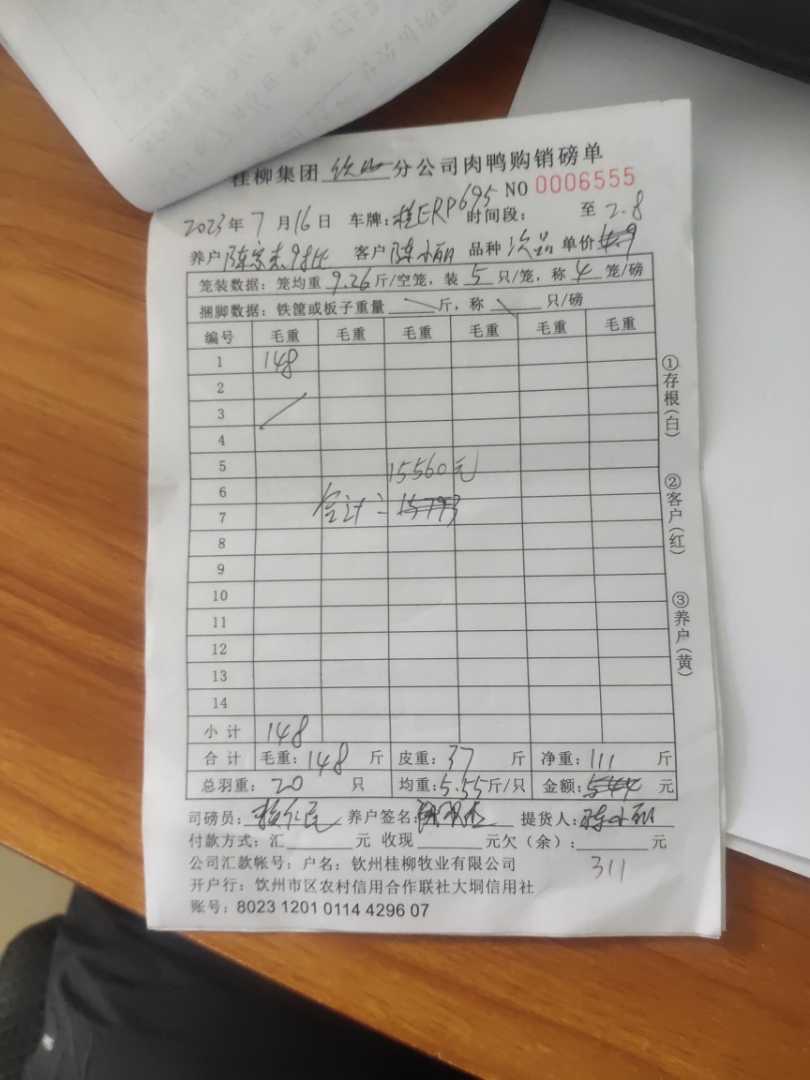 桂柳集团 钦州 分公司肉鸭购销磅单
NO 0006555
2023年 7 月 16 日 车牌:桂ERP695 时间段: 至 2.8
养户 客户 陈小丽 品种 次品 单价 4.9
笼装数据:笼均重 9.26 斤/空笼,装 5 只/笼,称 4 笼/磅
捆脚数据:铁筐或板子重量 斤,称 只/磅
编号 毛重 毛重 毛重 毛重 毛重 毛重
1 148
2
3
4
5 15560元
6
7 合计: 15793
8
9
10
11
12
13
14
小计 148
合计 毛重:148 斤 皮重:37 斤 净重:111 斤
总羽重: 20 只 均重:5.55斤/只 金额:544 元
司磅员: 养户签名: 提货人:陈小丽
付款方式:汇 元 收现 元欠(余): 元
311
公司汇款帐号:户名:钦州桂柳牧业有限公司
开户行:钦州市区农村信用合作联社大垌信用社
账号:8023 1201 0114 4296 07
①存根(白)
②客户(红)
③养户(黄)